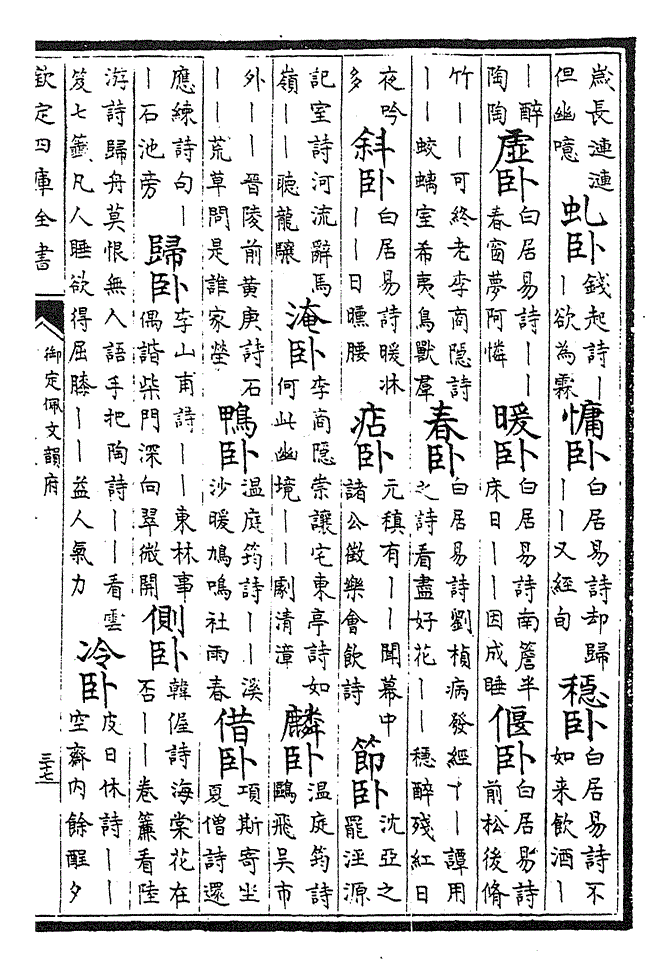 歲長漣漣
但幽噫
虬卧
錢起詩丨
丨欲為霖
慵卧
白居易詩却歸
丨丨又經旬
穩卧
白居易詩不
如来飲酒丨
丨醉
陶陶
虛卧
白居易詩丨丨
春窗夢阿憐
暖卧
白居易詩南簷半
床日丨丨因成睡
偃卧
白居易詩
前松後脩
竹丨丨可終老李商隱詩
丨丨蛟螭室希夷鳥獸羣
春卧
白居易詩劉楨病發經丫丨譚用
之詩看盡好花丨丨穩醉殘紅日
夜吟
多
斜卧
白居易詩暖牀
丨丨日曛腰
痁卧
元稹有丨丨聞幕中
諸公徵樂會飲詩
節卧
沈亞之
罷涇源
記室詩河流辭馬
嶺丨丨聽龍驤
淹卧
李商隱崇讓宅東亭詩如
何此幽境丨丨劇清漳
麟卧
溫庭筠詩
鷗飛吳市
外丨丨晉陵前黄庚詩石
丨丨荒草問是誰家塋
鴨卧
溫庭筠詩丨丨溪
沙暖鳩鳴社雨春
借卧
項斯寄坐
夏僧詩還
應練詩句丨
丨石池旁
歸卧
李山甫詩丨丨東林事
偶諧柴門深向翠微開
側卧
韓偓詩海棠花在
否丨丨卷簾看陸
游詩歸舟莫恨無人語手把陶詩丨丨看雲
笈七籤凡人睡欲得屈膝丨丨益人氣力
冷卧
皮日休詩丨丨
空齋内餘酲夕
欽定四庫全書
御定佩文韻府
三十七